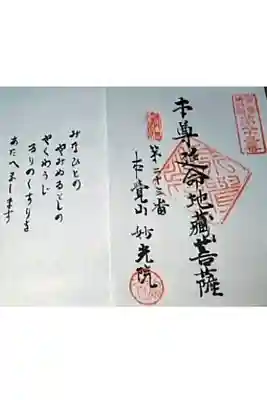 本尊延命地藏菩薩
第二十三番
本覚山 妙光院
みなひとの
やみぬるとしの
やくわうじ
るりのくすりを
あたへまします